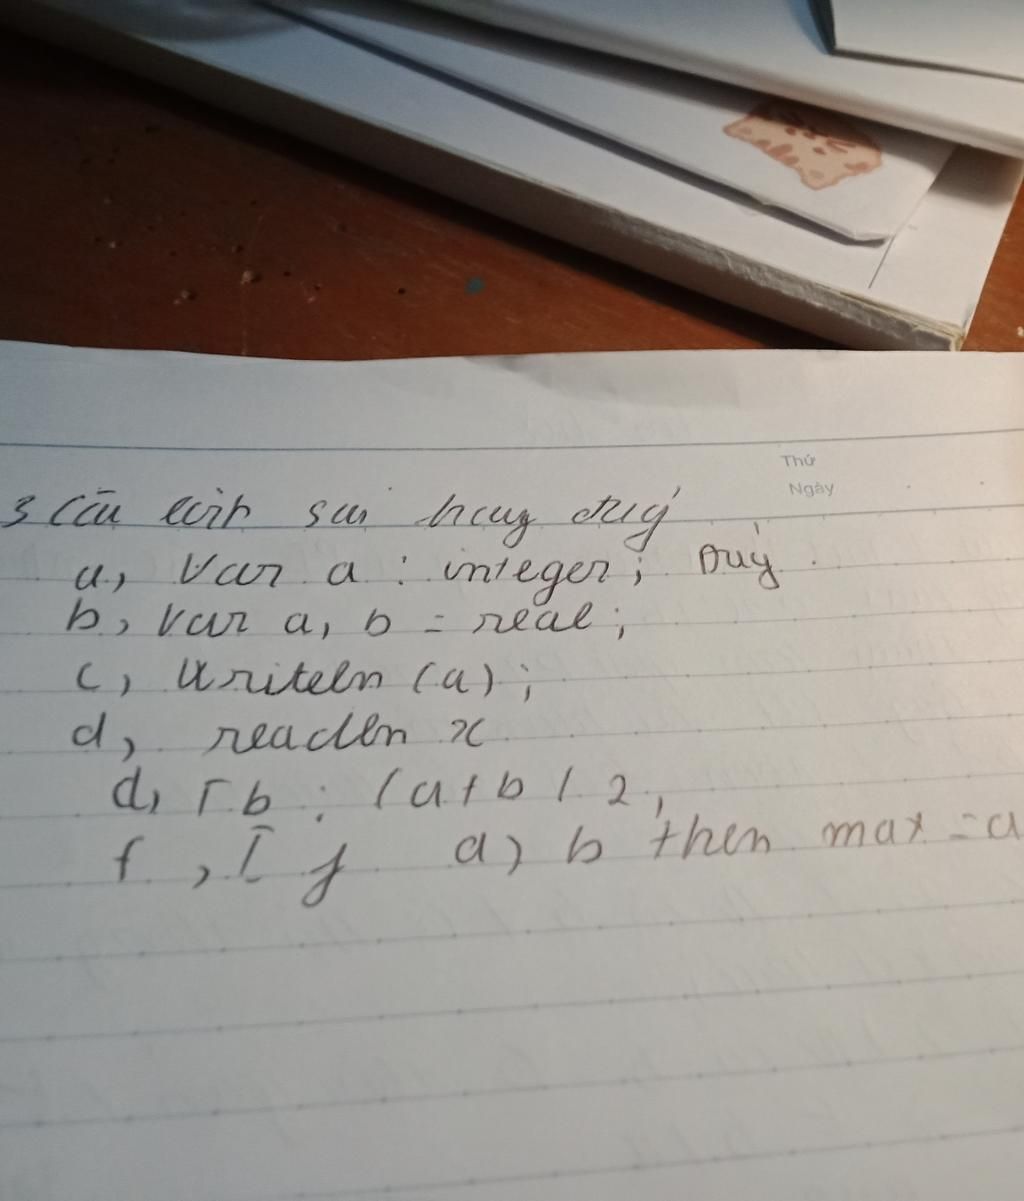 Thứ
Ngày
3 Câu lệnh sai hay đúng
a, Var a : integer; Đúng
b, Var a, b = real;
c, Writeln (a);
d, readln x
d, Tb : (a+b / 2,
f, If a) b then max = a